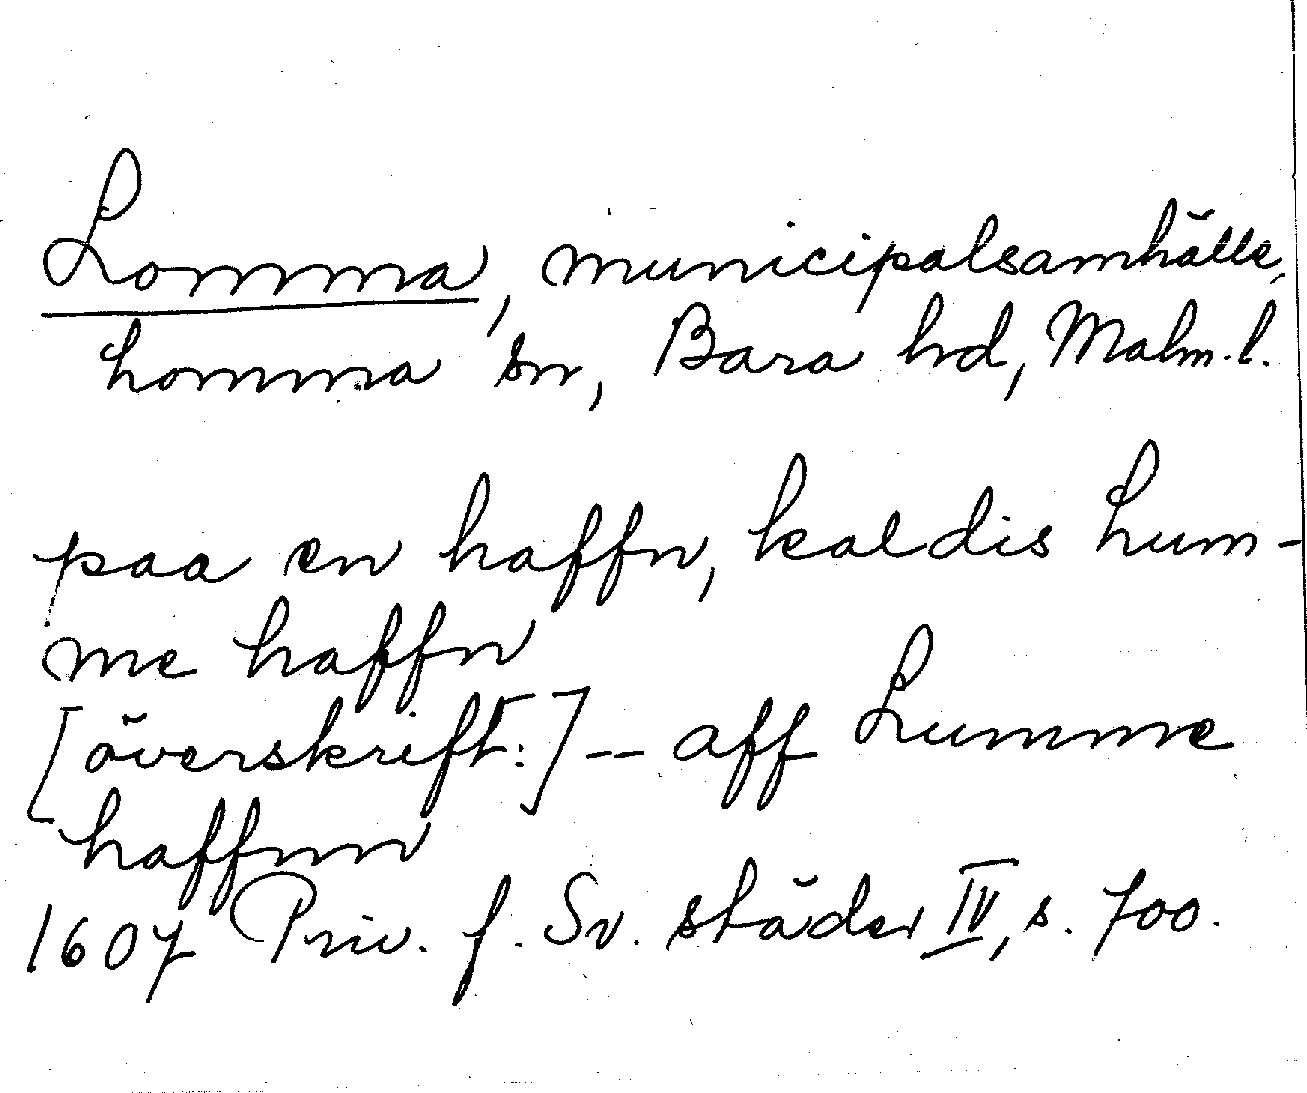 Lomma, municipalsamhälle,
Lomma sn, Bara hd, Malm. l.
paa en haffn, kaldis Lum-
me haffn
[överskrift:] -- aff Lumme
haffnn
1607 Priv. f. Sv. städer IV, s. 700.